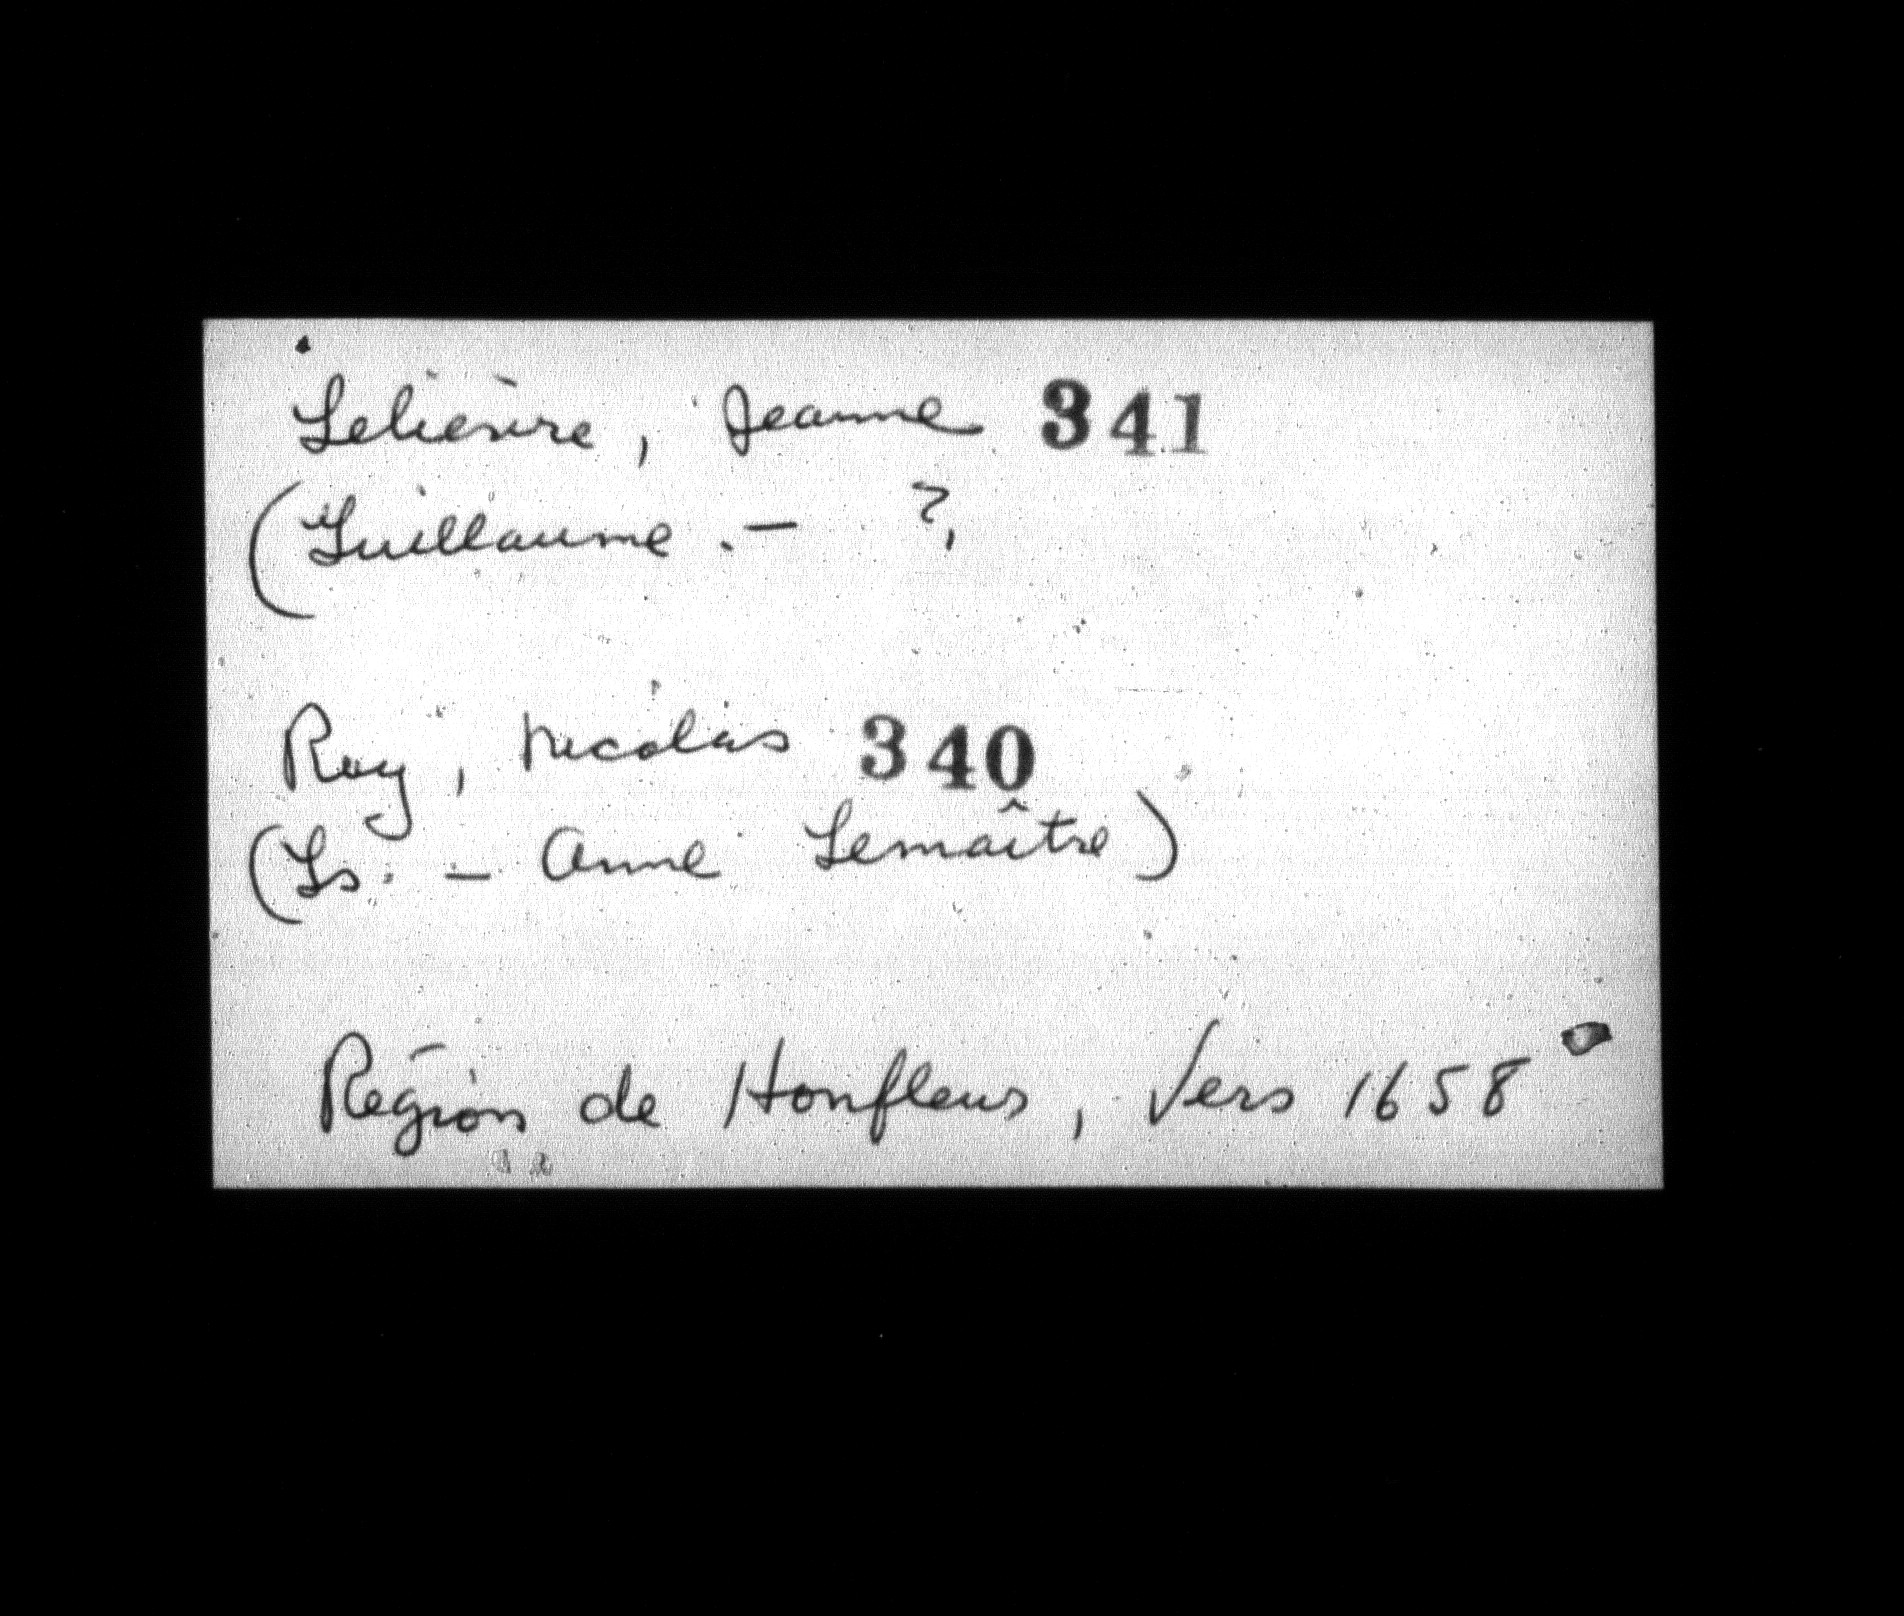 Lelièvre, Jeanne 341
(Guillaume. - ?,
Roy, Nicolas 340
(Ls. - Anne Lemaître)
Région de Honfleur, Vers 1658